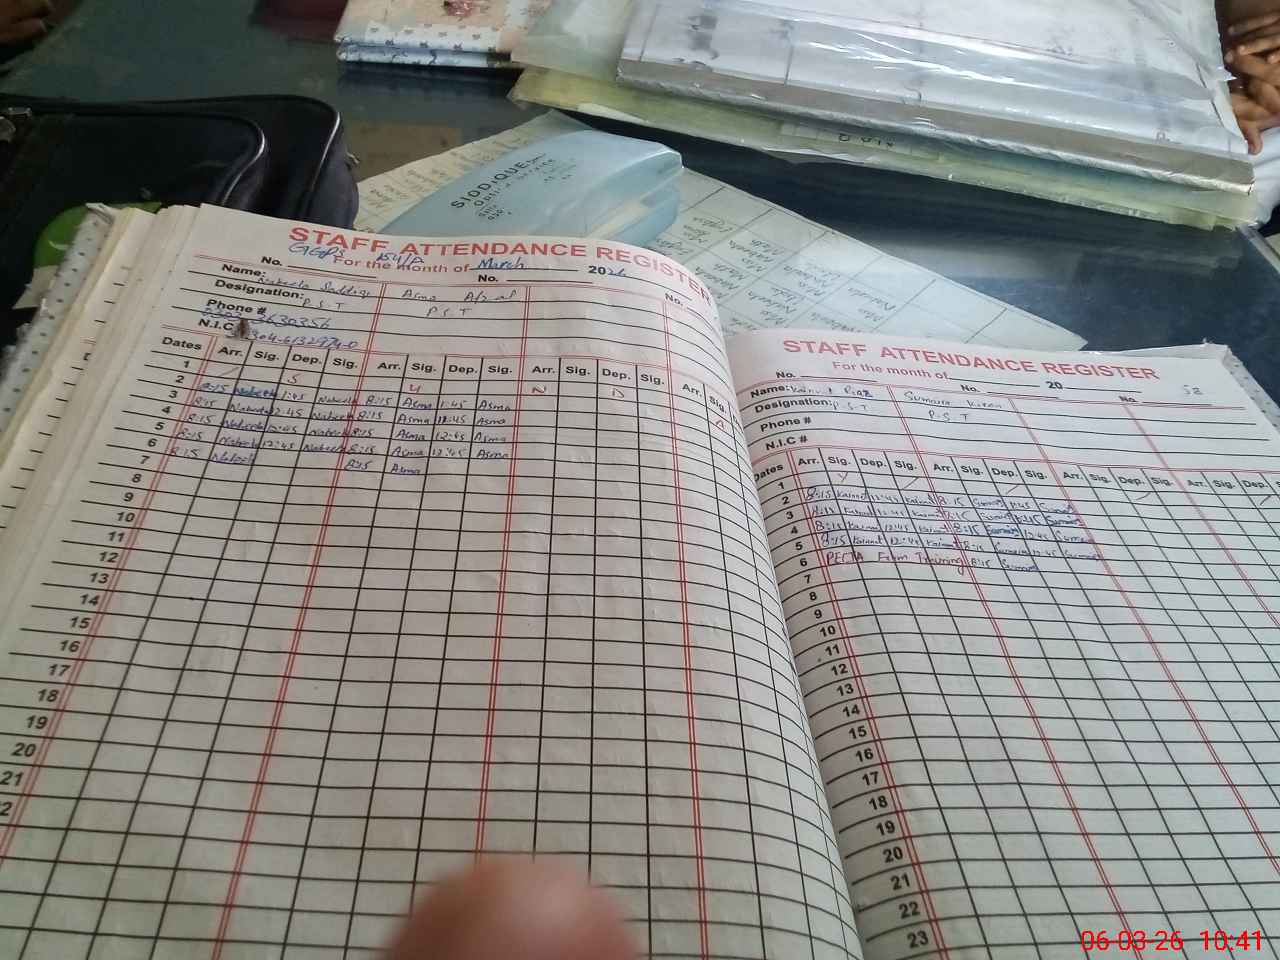 SIDDIQUE
STAFF ATTENDANCE REGISTER
GGPS 154/A
For the month of March 2026
No. No. No.
Name: Nabeela Siddiqi Asma Afzal
Designation: P.S.T P.S.T
Phone #
N.I.C #
Dates Arr. Sig. Dep. Sig. Arr. Sig. Dep. Sig. Arr. Sig. Dep. Sig. Arr. Sig.
1 S U N D A
2 8:15 Nabeela 1:45 Nabeela 8:15 Asma 1:45 Asma
3 8:15 Nabeela 12:45 Nabeela 8:15 Asma 12:45 Asma
4 8:15 Nabeela 12:45 Nabeela 8:15 Asma 12:45 Asma
5 8:15 Nabeela 12:45 Nabeela 8:15 Asma 12:45 Asma
6 8:15 Nabeela 8:15 Asma
7
8
9
10
11
12
13
14
15
16
17
18
19
20
21
22
STAFF ATTENDANCE REGISTER
For the month of 20
No. No. No. 52
Name: Kainat Riaz Sumaira Kiran
Designation: P.S.T P.S.T
Phone #
N.I.C #
Dates Arr. Sig. Dep. Sig. Arr. Sig. Dep. Sig. Arr. Sig. Dep. Sig. Arr. Sig. Dep. S
1 Y
2 8:15 Kainat 12:45 Kainat 8:15 Sumaira 1:45 Sumaira
3 8:15 Kainat 12:45 Kainat 8:15 Sumaira 12:45 Sumaira
4 8:15 Kainat 12:45 Kainat 8:15 Sumaira 12:45 Sumaira
5 8:15 Kainat 12:45 Kainat 8:15 Sumaira 12:45 Sumaira
6 PECTA Exam Training 8:15 Sumaira
7
8
9
10
11
12
13
14
15
16
17
18
19
20
21
22
23
06-03-26 10:41